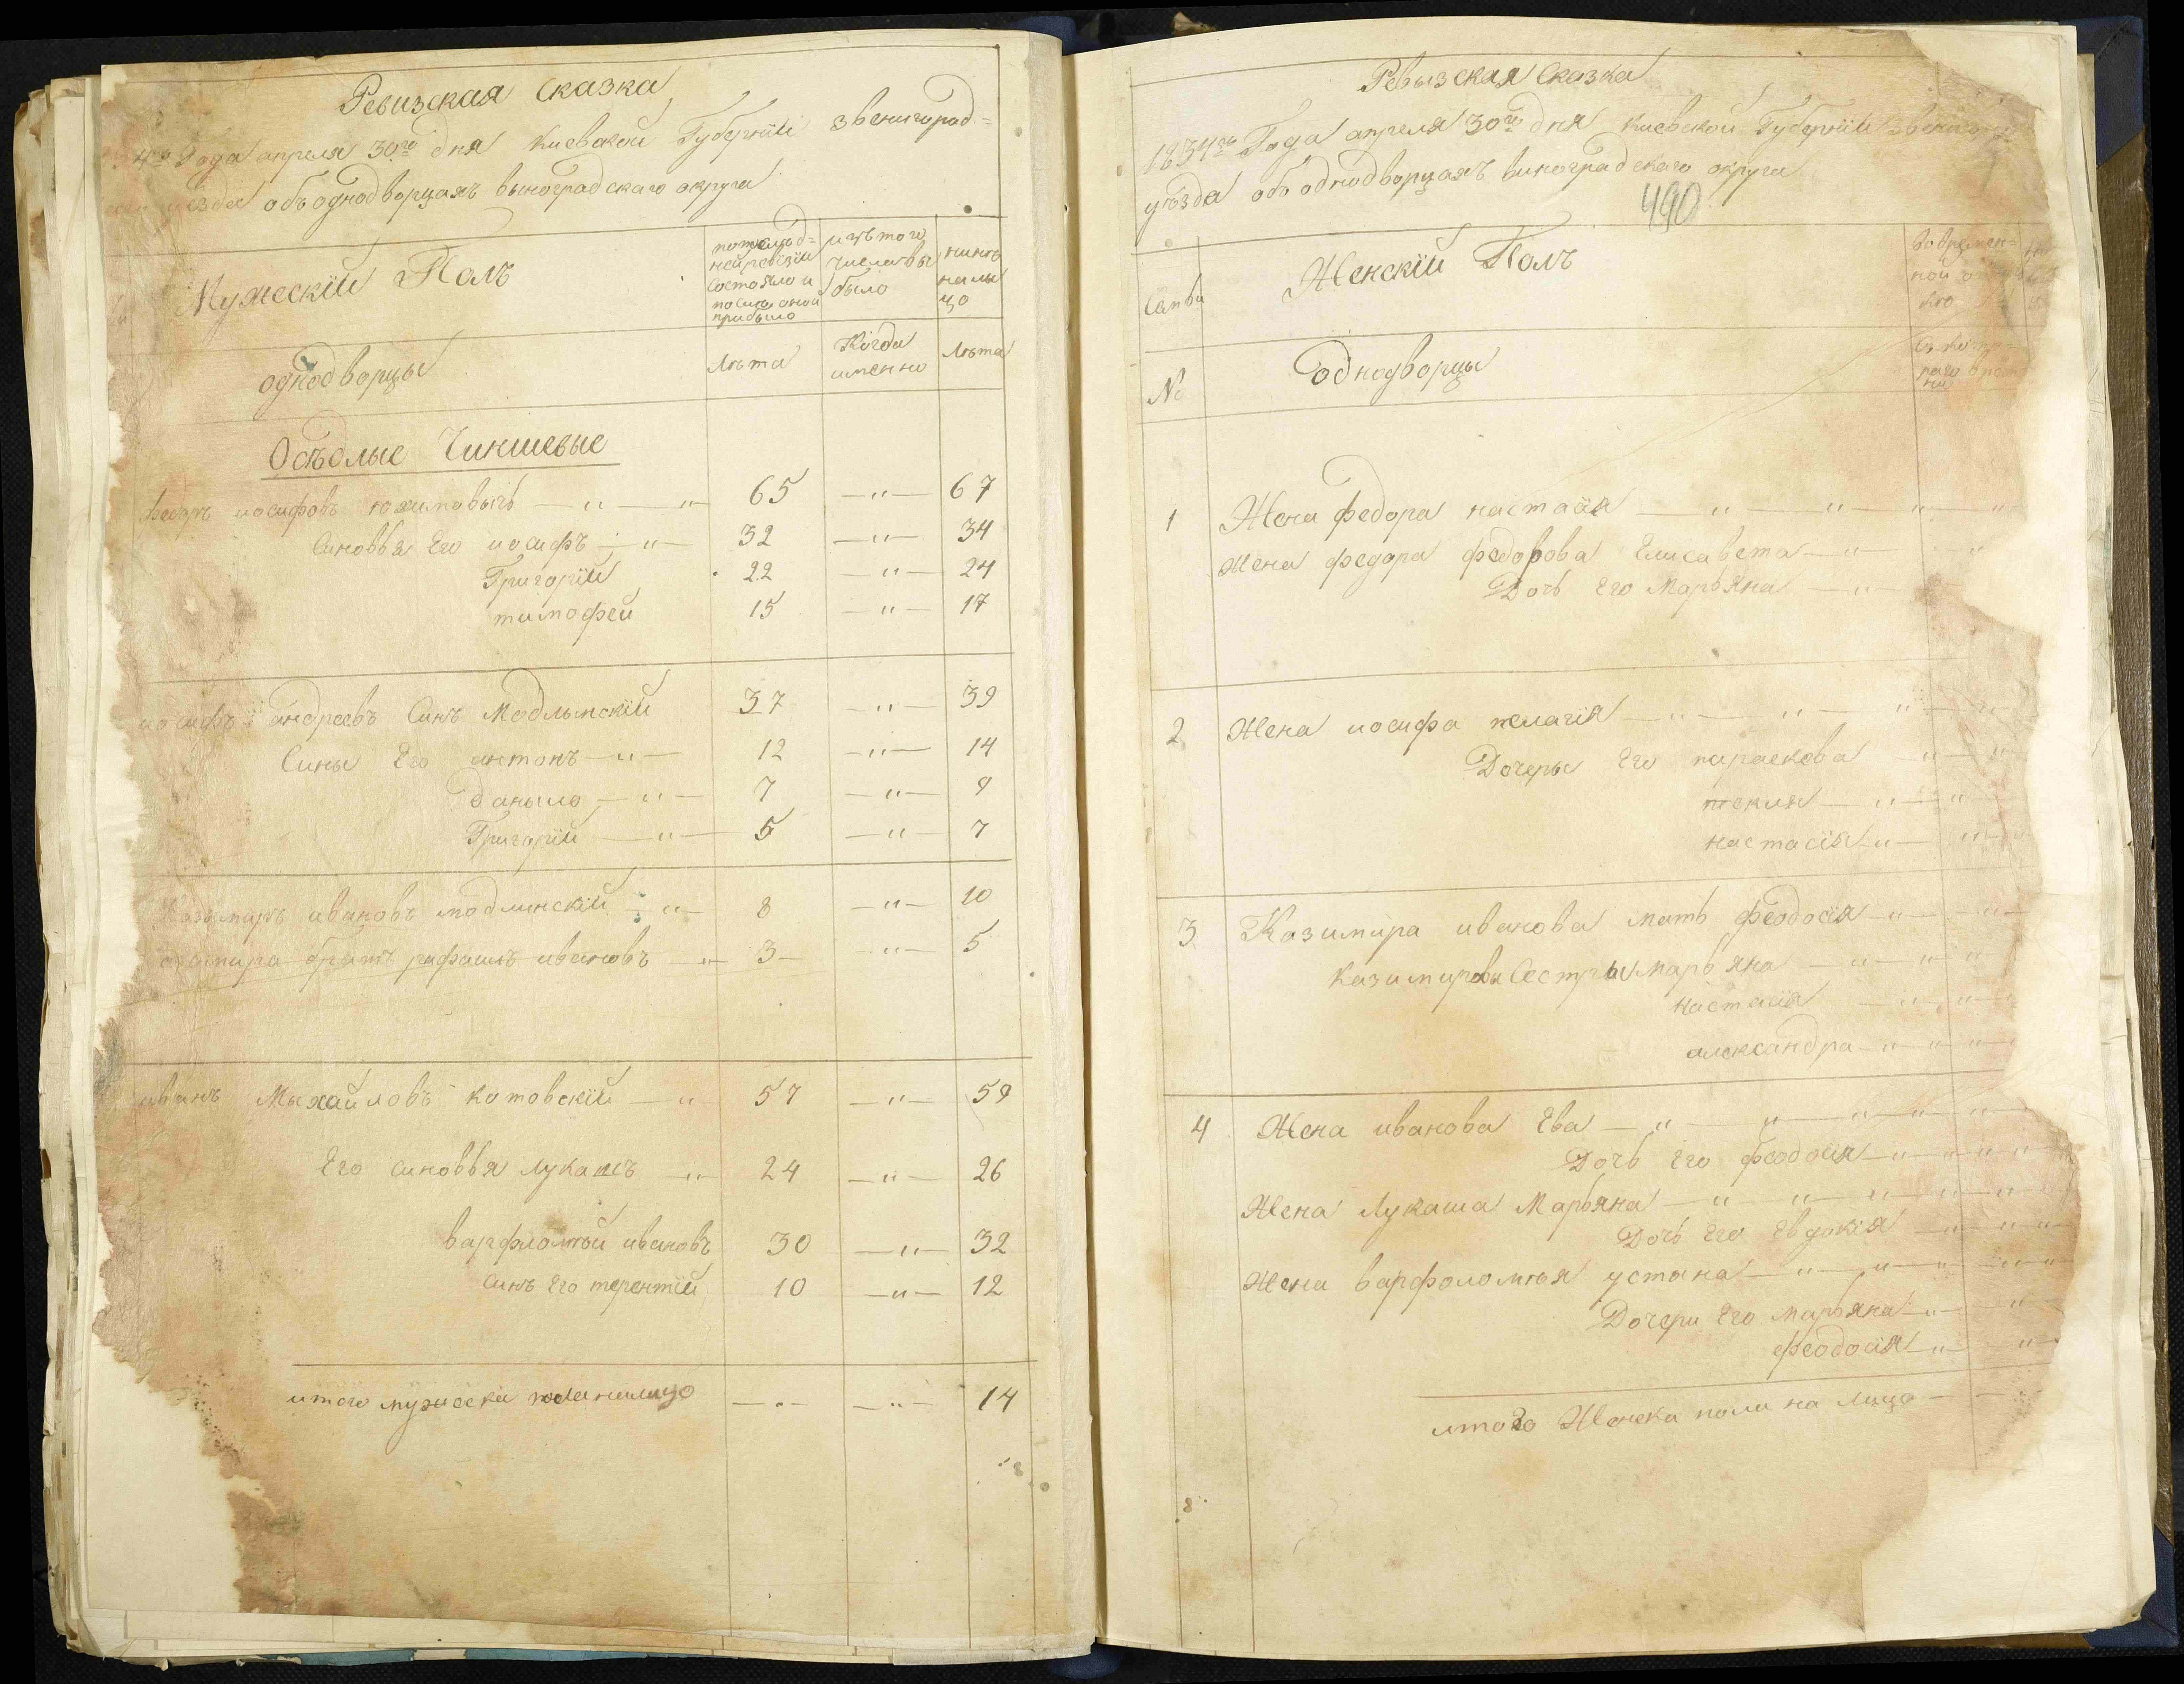 Ревизская Сказка
4го Года апреля 30го дня Киевской Губернїи звенигород=
уезда объ однодворцахъ выноградскаго округа
Мужескїй Полъ
по послѣд=
ней ревизїи
состояло и
после оной
прибыло
изъ того
числа вы
было
нинѣ
налы
цо
однодворцы
Лѣта
Когда
именно
Лѣта
Осѣдлые Чиншевые
федоръ иосифовъ юхимовычъ — " — " — 65 — " — 67
Синовья Его иосифъ — " — 32 — " — 34
Григорїй 22 — " — 24
тимофей 15 — " — 17
иосифъ андреевъ Синъ Модлымскїй 37 — " — 39
Сины Его антонъ — " — 12 — " — 14
Даныло — " — 7 — " — 9
Григорїй — " — 5 — " — 7
Казимиръ ивановъ модлинскїй — " — 8 — " — 10
казимира братъ рафаилъ ивановъ — " — 3 — " — 5
иванъ Мыхайловъ котовскїй — " 57 — " — 59
Его синовья Лукашъ — " — 24 — " — 26
варфломѣй ивановъ 30 — " — 32
синъ Его терентїй 10 — " — 12
итого мужеска пола налицо — " — — " — 14
Ревызская Сказка
1834го Года апреля 30го дня Киевской Губернїи
уѣзда объ однодворцахъ виноградскаго округа
490
Женскїй Полъ
во времен=
ной
Семьи
однодворцы
№
съ кото=
раго
1 Жена федора настасїя — " — " — " — "
Жена федора федорова Елисавета — " — "
Дочь Его Марьяна — " —
2 Жена иосифа пелагїя — " — " — " — "
Дочеры Его параскова — " — "
текля — " — "
настасїя — " — "
3 Казимира иванова мать феодосїя — " — "
Казимирови Сестры марьяна — " — " — "
настасїя — " — " — "
александра — " — " — "
4 Жена иванова Ева — " — " — " — " — "
Дочь Его феодосїя — " — " — " — "
Жена Лукаша Марьяна — " — " — " — " — "
Дочь Его Евдокїя — " — " — "
Жена варфоломѣя устына — " — " — " — " — "
Дочери Его марьяна — " — "
феодосїя — " — "
итого Женска пола на Лицо —